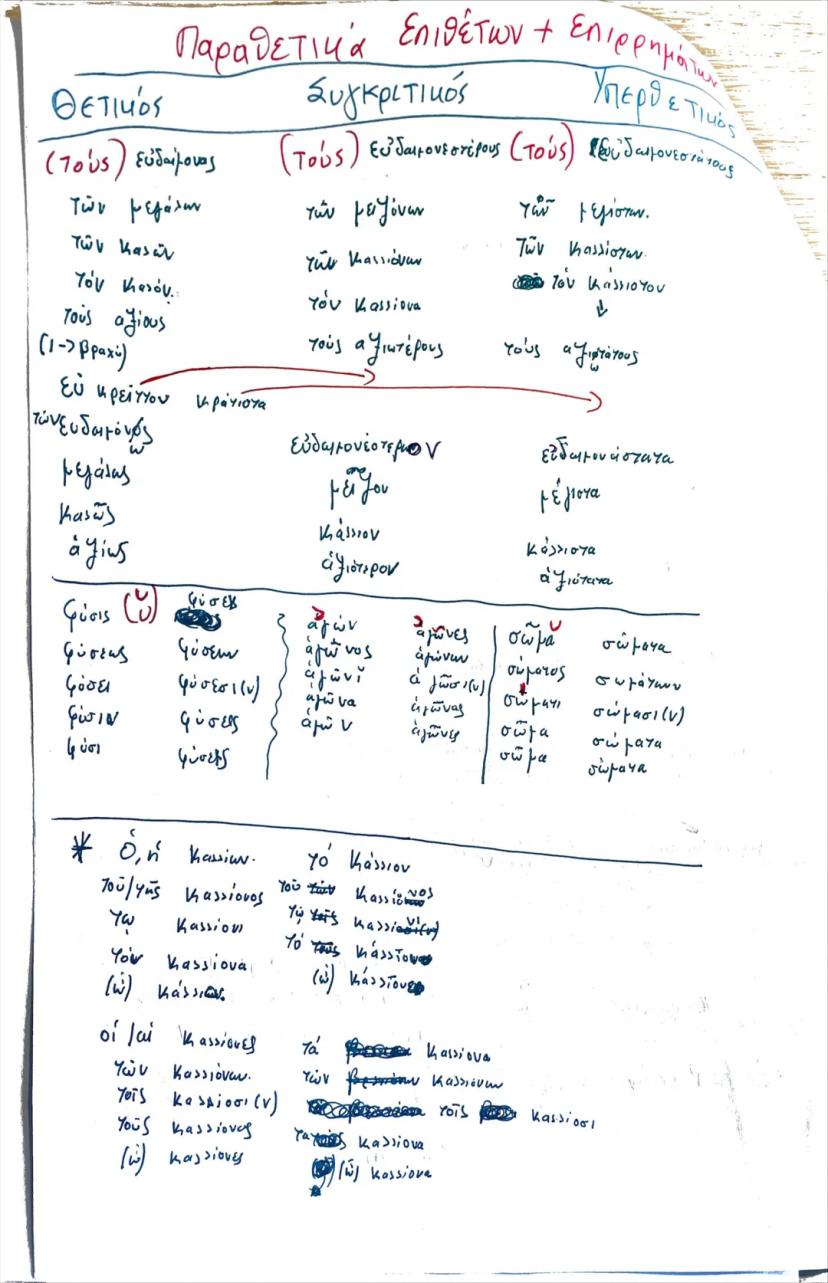 Παραθετικά Επιθέτων + Επιρρημάτων
Θετικός Συγκριτικός Υπερθετικός
(τούς) εὐδαίμονας (τούς) εὐδαιμονεστέρους (τούς) εὐδαιμονεστάτους
τῶν μεγάλων τῶν μειζόνων τῶν μεγίστων.
τῶν καλῶν τῶν καλλιόνων τῶν καλλίστων.
τόν καλόν. τόν καλλίονα τόν κάλλιστον
τούς αξίους τούς αξιωτέρους τούς αξιωτάτους
(ι -> βραχύ) ω
εὐ κρεῖττον κράτιστα
τῶν εὐδαιμόνως εὐδαιμονέστερον εὐδαιμονέστατα
ω
μεγάλως μεῖζον μέγιστα
καλῶς κάλλιον κάλλιστα
ἀξίως ἀξιότερον ἀξιότατα
φύσις (ῠ) φύσεις ἀγών ἀγῶνες σῶμα σώματα
φύσεως φύσεων ἀγῶνος ἀγώνων σώματος σωμάτων
φύσει φύσεσι(ν) ἀγῶνι ἀγῶσι(ν) σώματι σώμασι(ν)
φύσιν φύσεις ἀγῶνα ἀγῶνας σῶμα σώματα
φύσι φύσεις ἀγών ἀγῶνες σῶμα σώματα
* ὁ, ἡ καλλίων. τό κάλλιον
τοῦ/τῆς καλλίονος τοῦ καλλίονος
τῳ καλλίονι τῳ καλλίονι
τόν καλλίονα τό κάλλιον
(ὦ) κάλλιον. (ὦ) κάλλιον
οἱ/αἱ καλλίονες τά καλλίονα
τῶν καλλιόνων. τῶν καλλιόνων
τοῖς καλλίοσι(ν) τοῖς καλλίοσι
τοῦς καλλίονας τα καλλίονα
(ὦ) καλλίονες (ὦ) καλλίονα